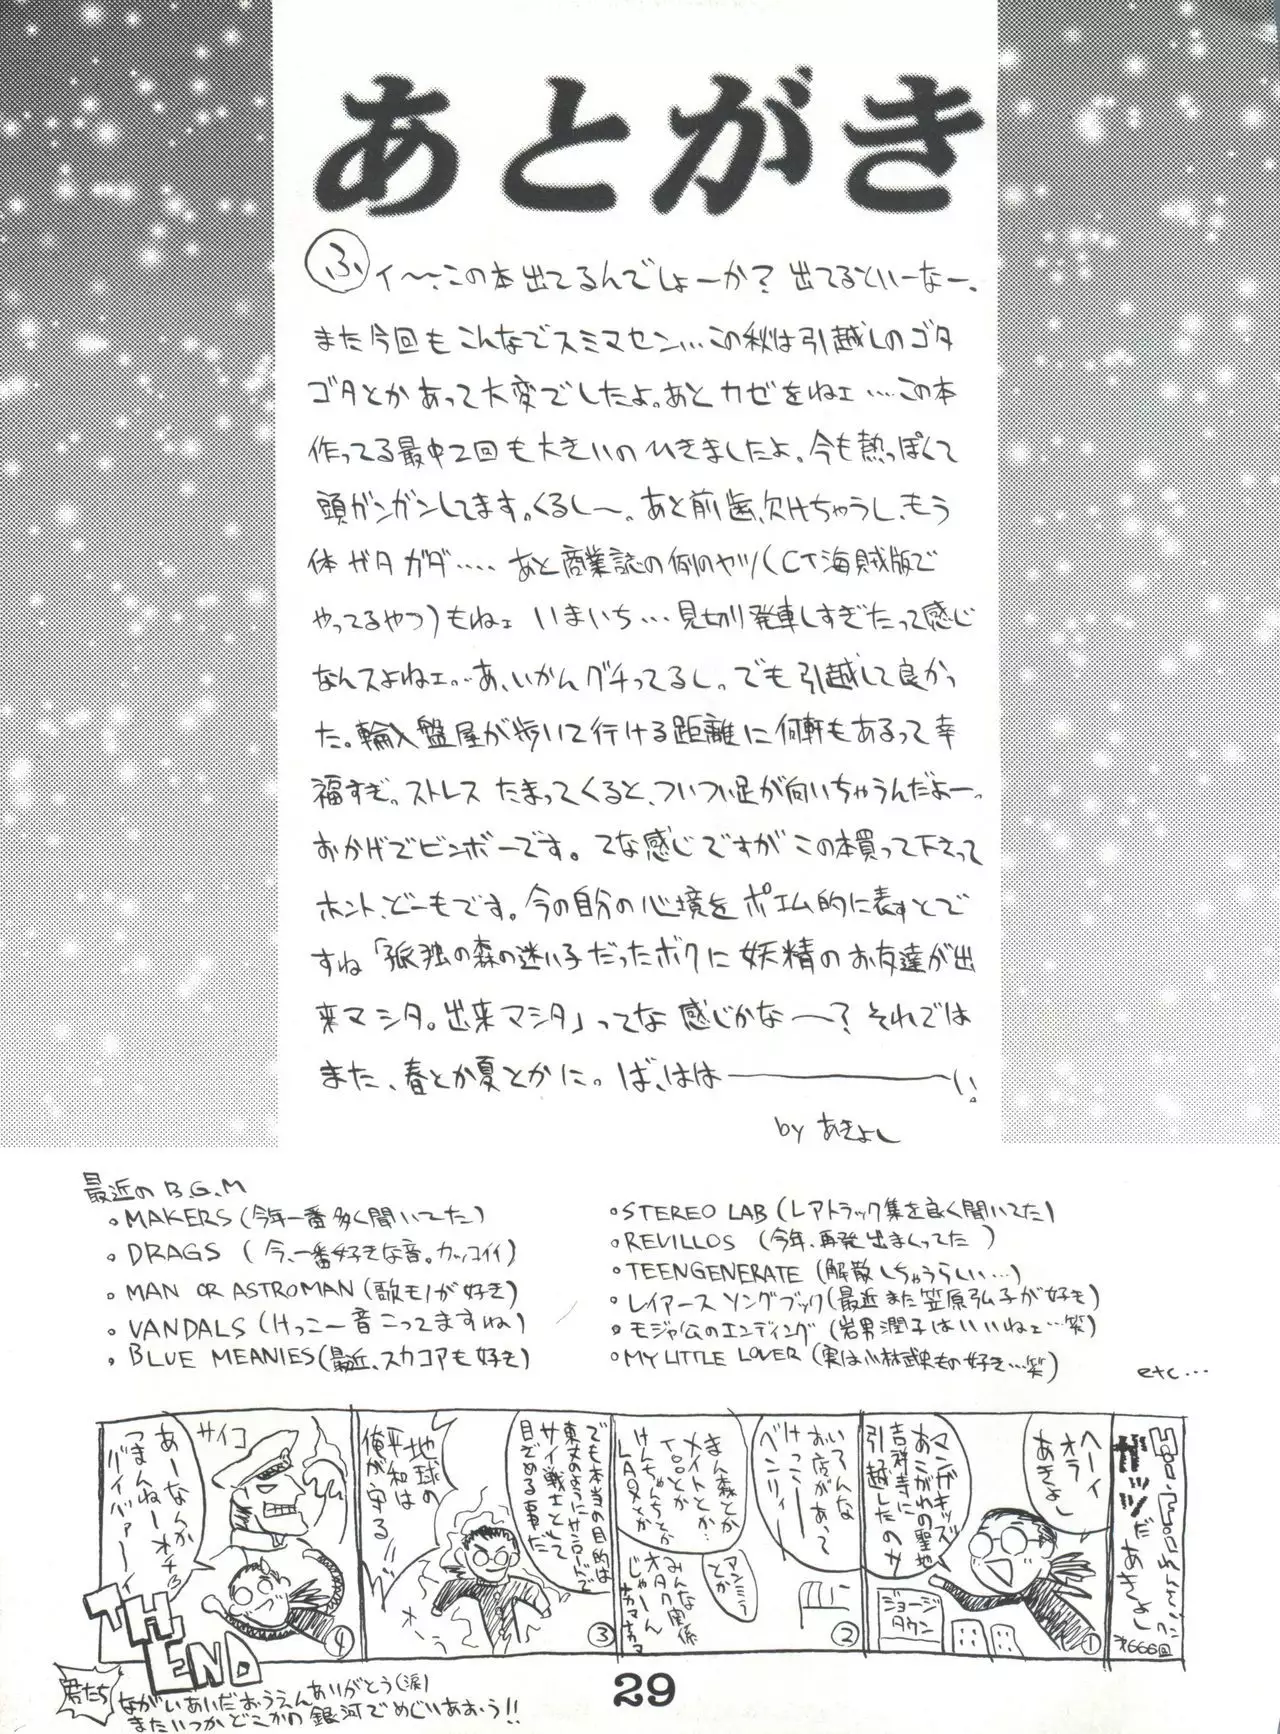 あとがき
ふィ〜、この本出てるんでしょーか？ 出てるといーなー、
また今回もこんなでスミマセン…この秋は引越しのゴタ
ゴタとかあって大変でしたよ。あとカゼをねェ……この本
作ってる最中2回も大きいのひきましたよ。今も熱っぽくて
頭ガンガンしてます。くるし〜。あと前歯、欠けちゃうし、もう
体ガタガタ……あと商業誌の例のヤツ(CT海賊版で
やってるやつ)もねェ いまいち…見切り発車しすぎたって感じ
なんスよねェ…あ、いかんグチってるし。でも引越して良かっ
た。輸入盤屋が歩いて行ける距離に何軒もあるって幸
福すぎ。ストレスたまってくると、ついつい足が向いちゃうんだよー。
おかげでビンボーです。てな感じですがこの本買って下さって
ホント、どーもです。今の自分の心境をポエム的に表すとで
すね「孤独の森の迷い子だったボクに妖精のお友達が出
来マシタ。出来マシタ」ってな感じかな〜？それでは
また、春とか夏とかに。ば、はは――――い。
by あきよし
最近のB.G.M
・MAKERS(今年一番多く聞いてた)
・DRAGS (今、一番好きな音。カッコイイ)
・MAN OR ASTROMAN(歌モノが好き)
・VANDALS(けっこー音こってますね)
・BLUE MEANIES(最近、スカコアも好き)
・STEREO LAB(レアトラック集を良く聞いてた)
・REVILLOS (今年、再発出まくってた)
・TEENGENERATE(解散しちゃうらしい…)
・レイアース ソングブック(最近また笠原弘子が好も)
・モジャ公のエンディング(岩男潤子はいいねェ…笑)
・MY LITTLE LOVER(実は小林武史もの好き…笑)
etc…
ガッツだ
あきよし
オ666回
ヘーイ
オラ
あきよし
マンガキッズ
あこがれの聖地
吉祥寺に
引越したのサ
ジョージ
タウン
①
いろんな
お店があって
けっこー
ベンリィ
まん森とか
メイトとか…
とか
けんちゃんちとか
LAOXとか
アンミラ
とか
みんな
オタク関係
じゃーん
ナカマナカマ
②
でも本当の目的は
東丈のようにサンロードで
サイ戦士として
目ざめる事だ
地球の
平和は
俺が守る
③
サイコ
あーなんか
つまんねーオチ
バイバァーイ
④
THE
END
君たち
ながいあいだおうえんありがとう(涙)
またいつかどこかの銀河でめぐりあおう!!
29